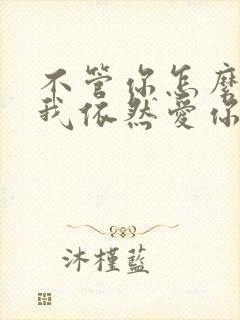 不管你怎麼
我依然愛你
沐槿藍